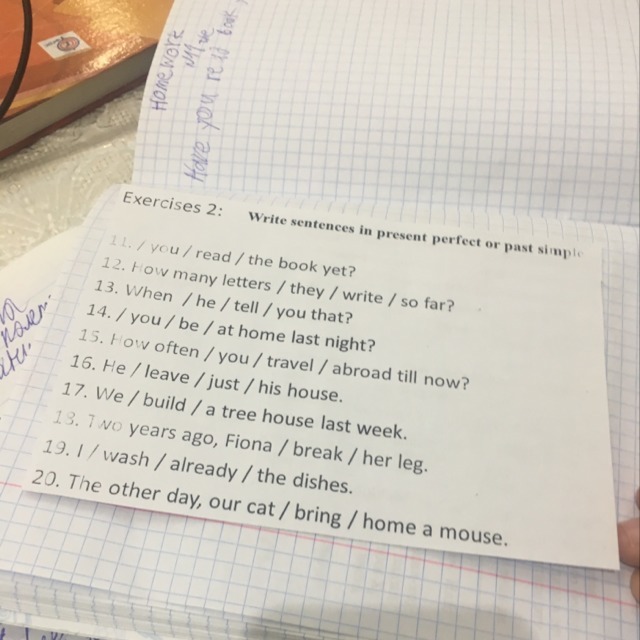 Homework
Have you read book
Exercises 2:
Write sentences in present perfect or past simple
11. / you / read / the book yet?
12. How many letters / they / write / so far?
13. When / he / tell / you that?
14. / you / be / at home last night?
15. How often / you / travel / abroad till now?
16. He / leave / just / his house.
17. We / build / a tree house last week.
18. Two years ago, Fiona / break / her leg.
19. I / wash / already / the dishes.
20. The other day, our cat / bring / home a mouse.